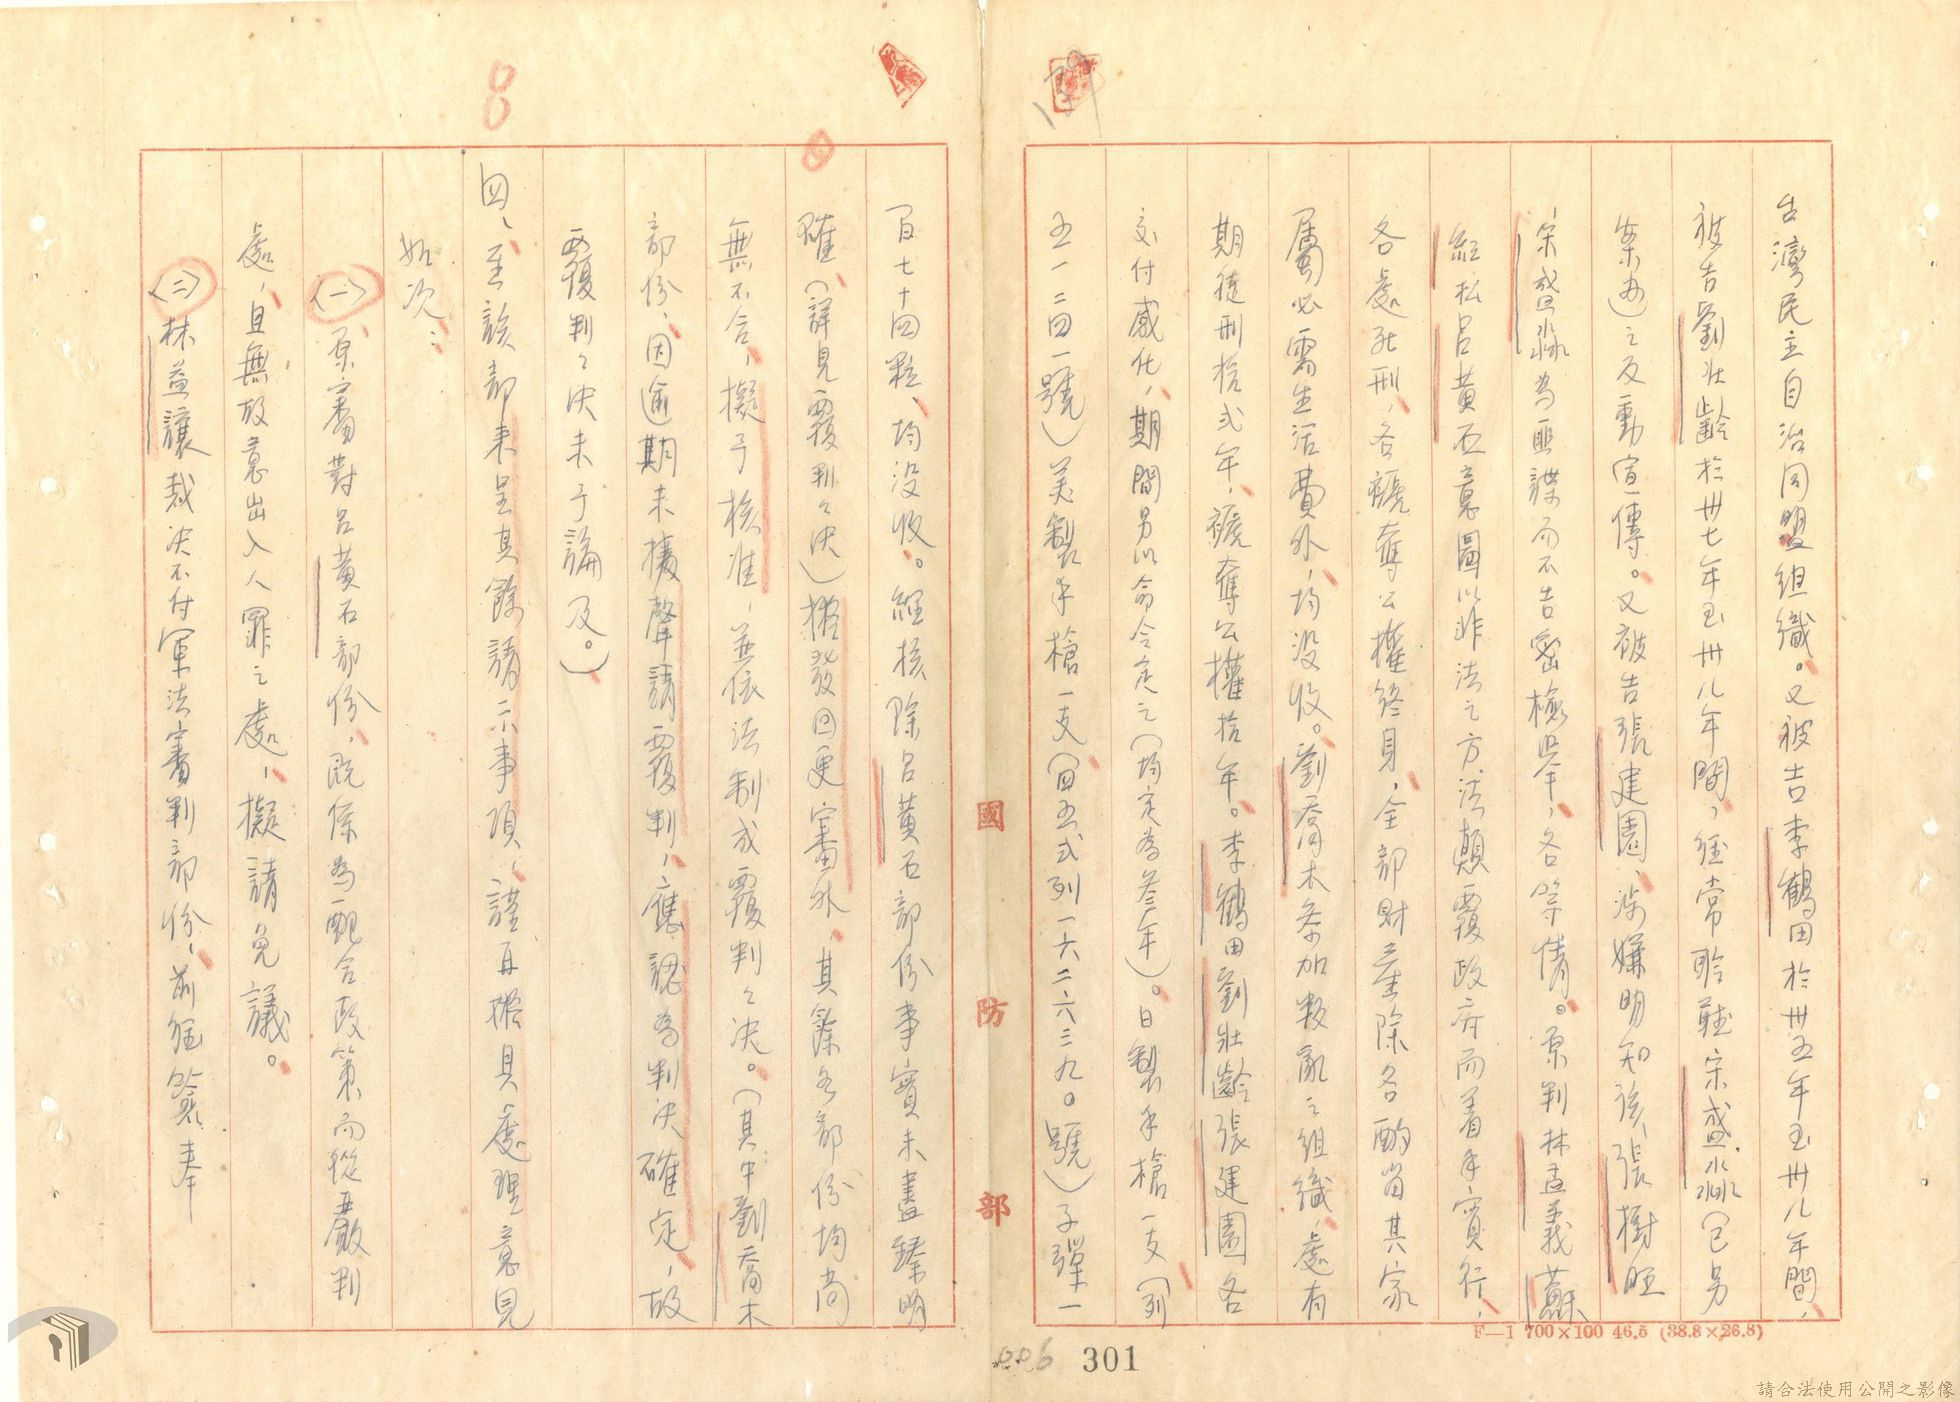 台灣民主自治同盟組織。又被告李鶴田於卅五年至卅八年間、
被告劉壯齡於卅七年至卅八年間、經常聆聽宋盛淼（已另
案办）之反動宣傳。又被告張建園、涉嫌明知該張樹旺
、宋盛淼為匪諜而不告密檢舉、各等情。原判林孟義蘇
紅松呂黃石意圖以非法之方法顛覆政府而着手實行、
各處死刑、各褫奪公權終身、全部財產除各酌留其家
屬必需生活費外、均沒收。劉喬木參加叛亂之組織、處有
期徒刑拾弍年、褫奪公權拾年。李鶴田劉壯齡張建園各
交付感化、期間另以命令定之（均定為叁年）。日製手槍一支（列
五一二四一號）美製手槍一支（四五式列一六二六三九〇號）子彈一
百七十四粒、均沒收。經核除呂黃石部份事實未盡臻明
確（詳見覆判之決）擬發回更審外、其餘各部份均尚
無不合、擬予核准、並依法制成覆判之決。（其中劉喬木
部份、因逾期未據聲請覆判、應認為判決確定、故
覆判之決未予論及。）
四、至該部未呈其餘請示事項、謹再擬具處理意見
如次：
（一）原審對呂黃石部份、既係為配合政策而從嚴判
處、且無故意出入人罪之處、擬請免議。
（二）林益讓裁決不付軍法審判部份、前經簽奉
國防部
F—1 700×100 46.5 (38.8×26.8)
006 301
請合法使用公開之影像